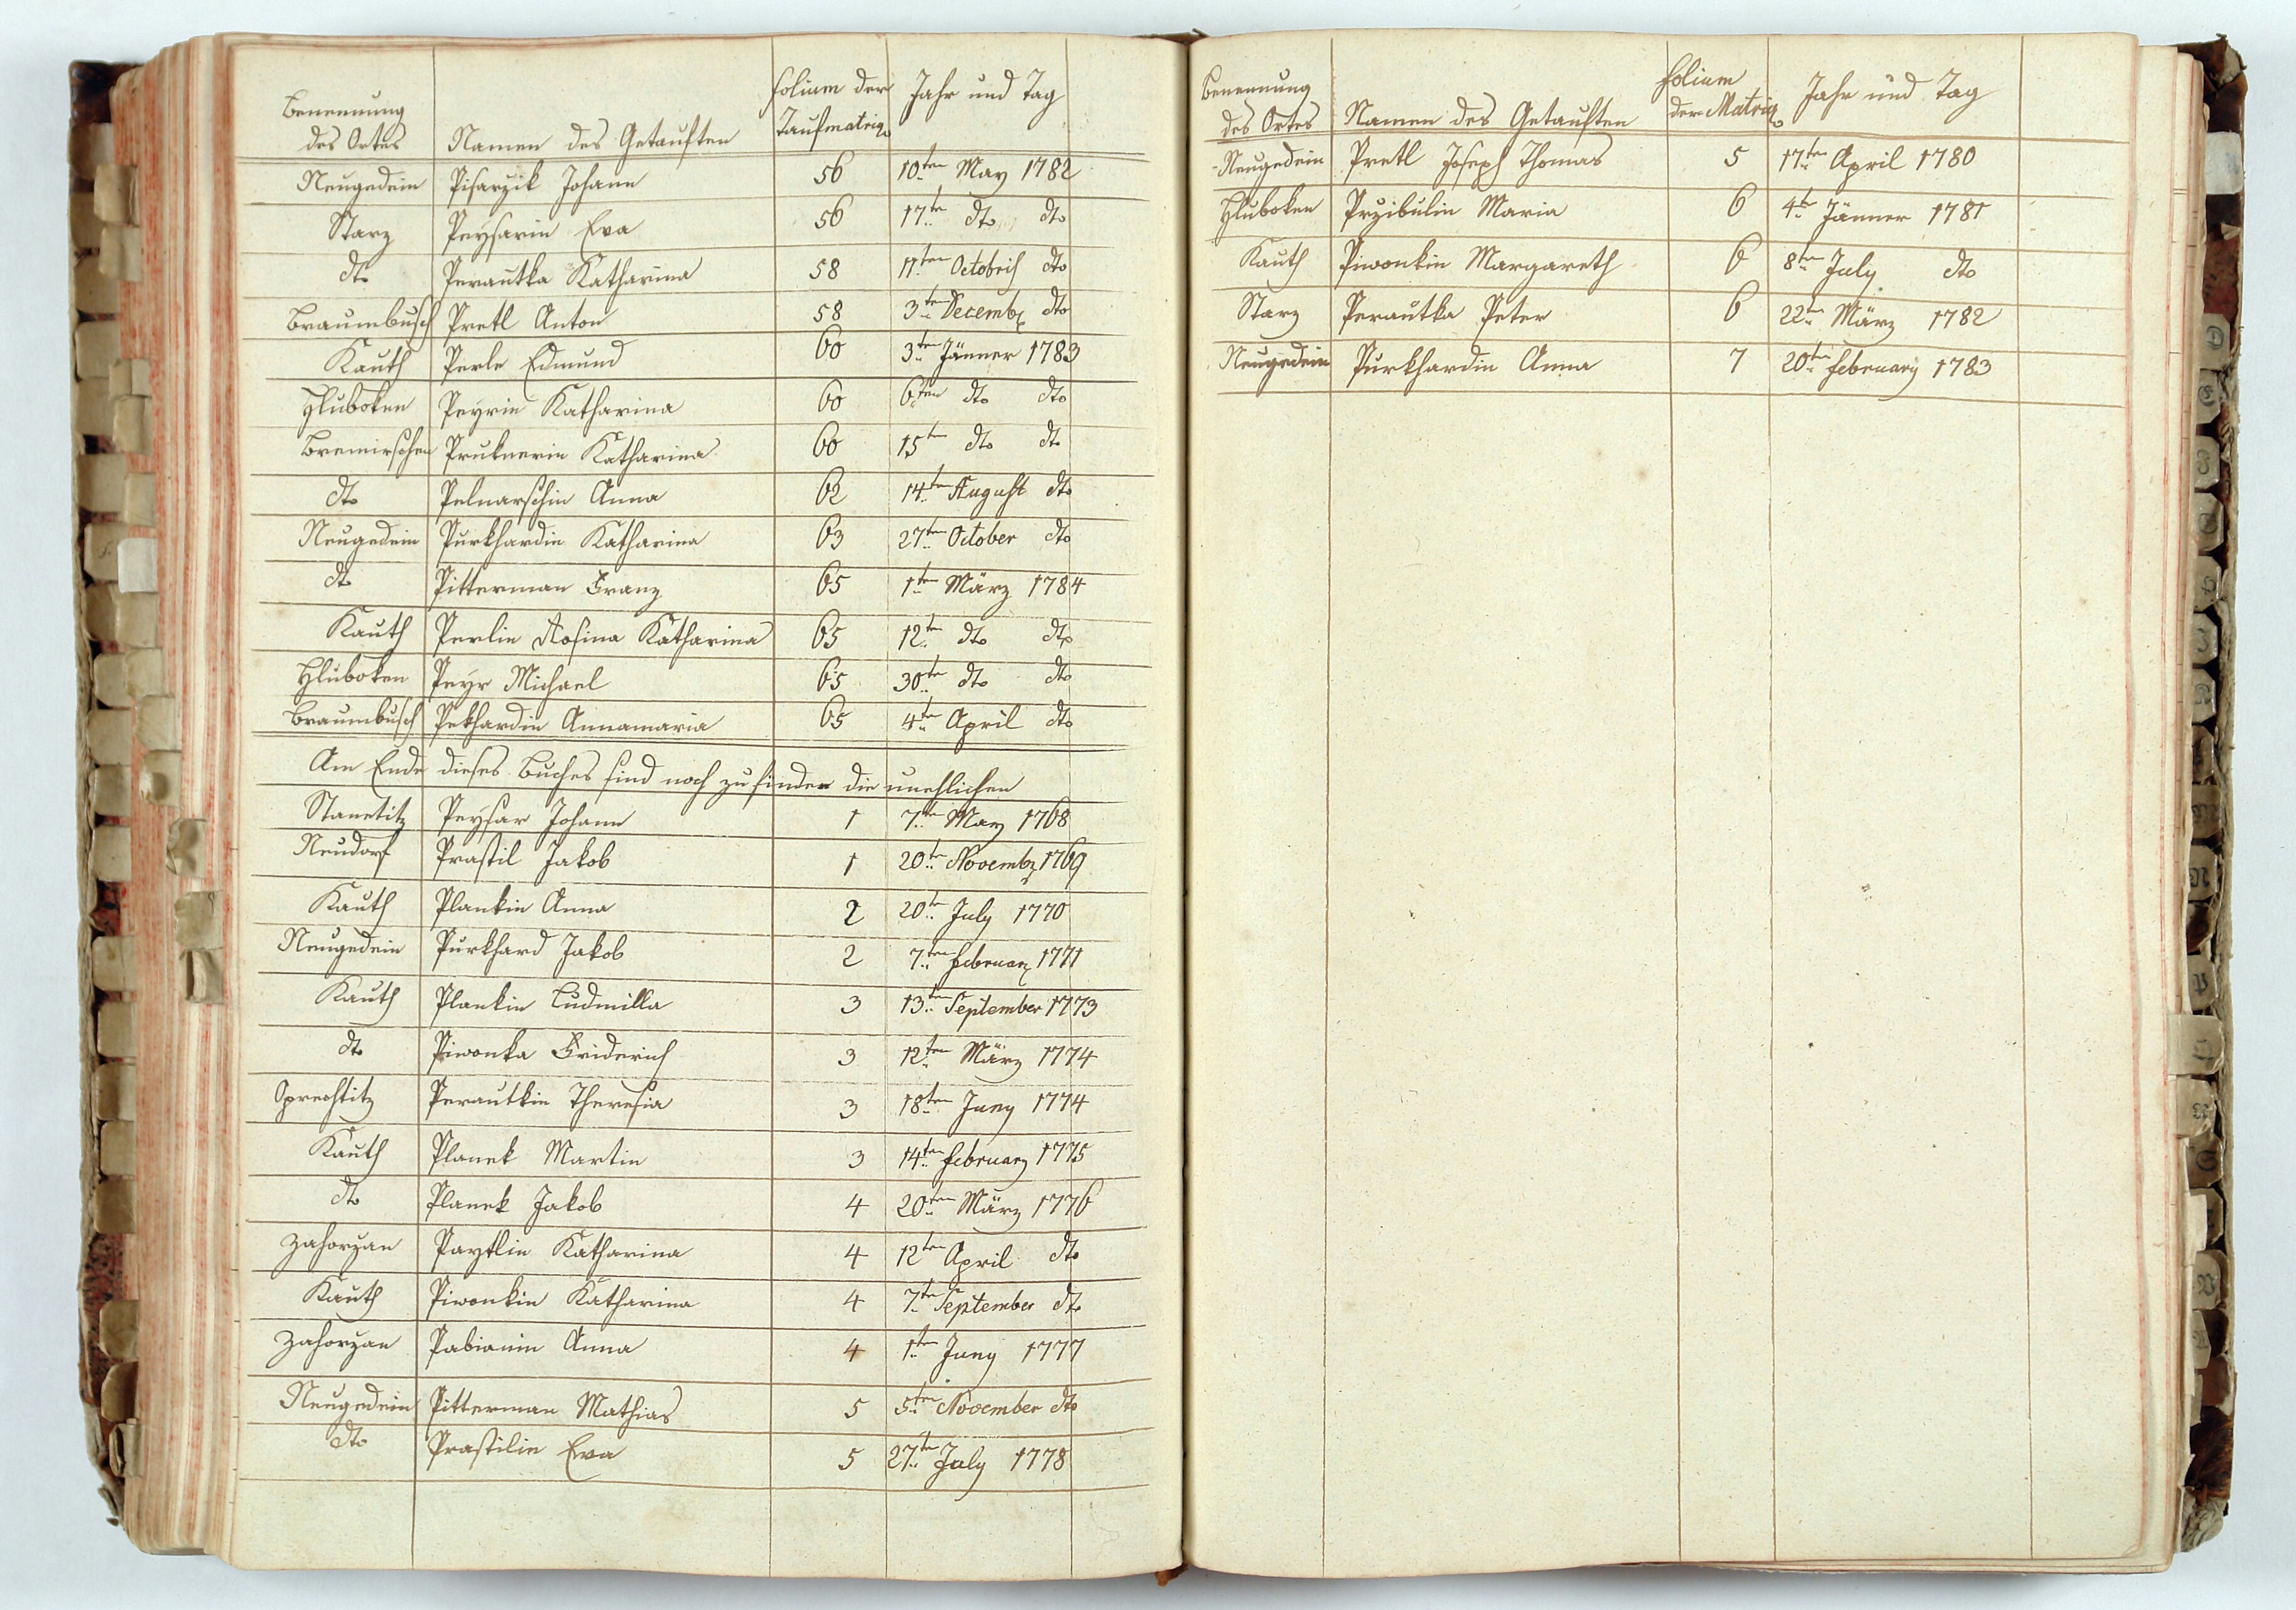 Benennung des Ortes | Namen des Getauften | Folium der Taufmatrig | Jahr und Tag
Neugedein | Pisarzik Johann | 56 | 10ten May 1782
Starz | Peysarin Eva | 56 | 17te dto dto
dto | Perautka Katharina | 58 | 11ten Octobris dto
Braumbusch | Pretl Anton | 58 | 3ten Decemb dto
Kauth | Perle Edmund | 60 | 3ten Jänner 1783
Hluboken | Peyrin Katharina | 60 | 6ten dto dto
Bremirschen | Pruknerin Katharina | 60 | 15ten dto dto
dto | Pelnarschin Anna | 62 | 14ten August dto
Neugedein | Purkhardin Katharina | 63 | 27ten October dto
dto | Pitterman Franz | 65 | 1ten März 1784
Kauth | Perlin Rosina Katharina | 65 | 12ten dto dto
Hluboken | Peyr Michael | 65 | 30te dto dto
Braumbusch | Pekhardin Annamaria | 65 | 4te April dto
Am Ende dieses Buches sind noch zu finden die unehlichen
Stanetitz | Peysar Johann | 1 | 7ten May 1768
Neudorf | Prastil Jakob | 1 | 20te Novemb 1769
Kauth | Plankin Anna | 2 | 20te July 1770
Neugedein | Purkhard Jakob | 2 | 7ten Februar 1771
Kauth | Plankin Ludmilla | 3 | 13ten September 1773
dto | Piwonka Friderich | 3 | 12ten März 1774
Sprechtitz | Perautkin Theresia | 3 | 18ten Juny 1774
Kauth | Planek Martin | 3 | 14ten February 1775
dto | Planek Jakob | 4 | 20ten März 1776
Zahorzan | Paytlin Katharina | 4 | 12ten April dto
Kauth | Piwonkin Katharina | 4 | 7te September dto
Zahorzan | Pabianin Anna | 4 | 1ten Juny 1777
Neugedein | Pitterman Mathias | 5 | 5ten November dto
dto | Prastilin Eva | 5 | 27te July 1778
Benennung des Ortes | Namen des Getauften | Folium der Matrig | Jahr und Tag
Neugedein | Pretl Joseph Thomas | 5 | 17ten April 1780
Hluboken | Przibulin Maria | 6 | 4te Jänner 1781
Kauth | Piwonkin Margareth | 6 | 8ten July dto
Starz | Perautka Peter | 6 | 22ten März 1782
Neugedein | Purkhardin Anna | 7 | 20ten February 1783